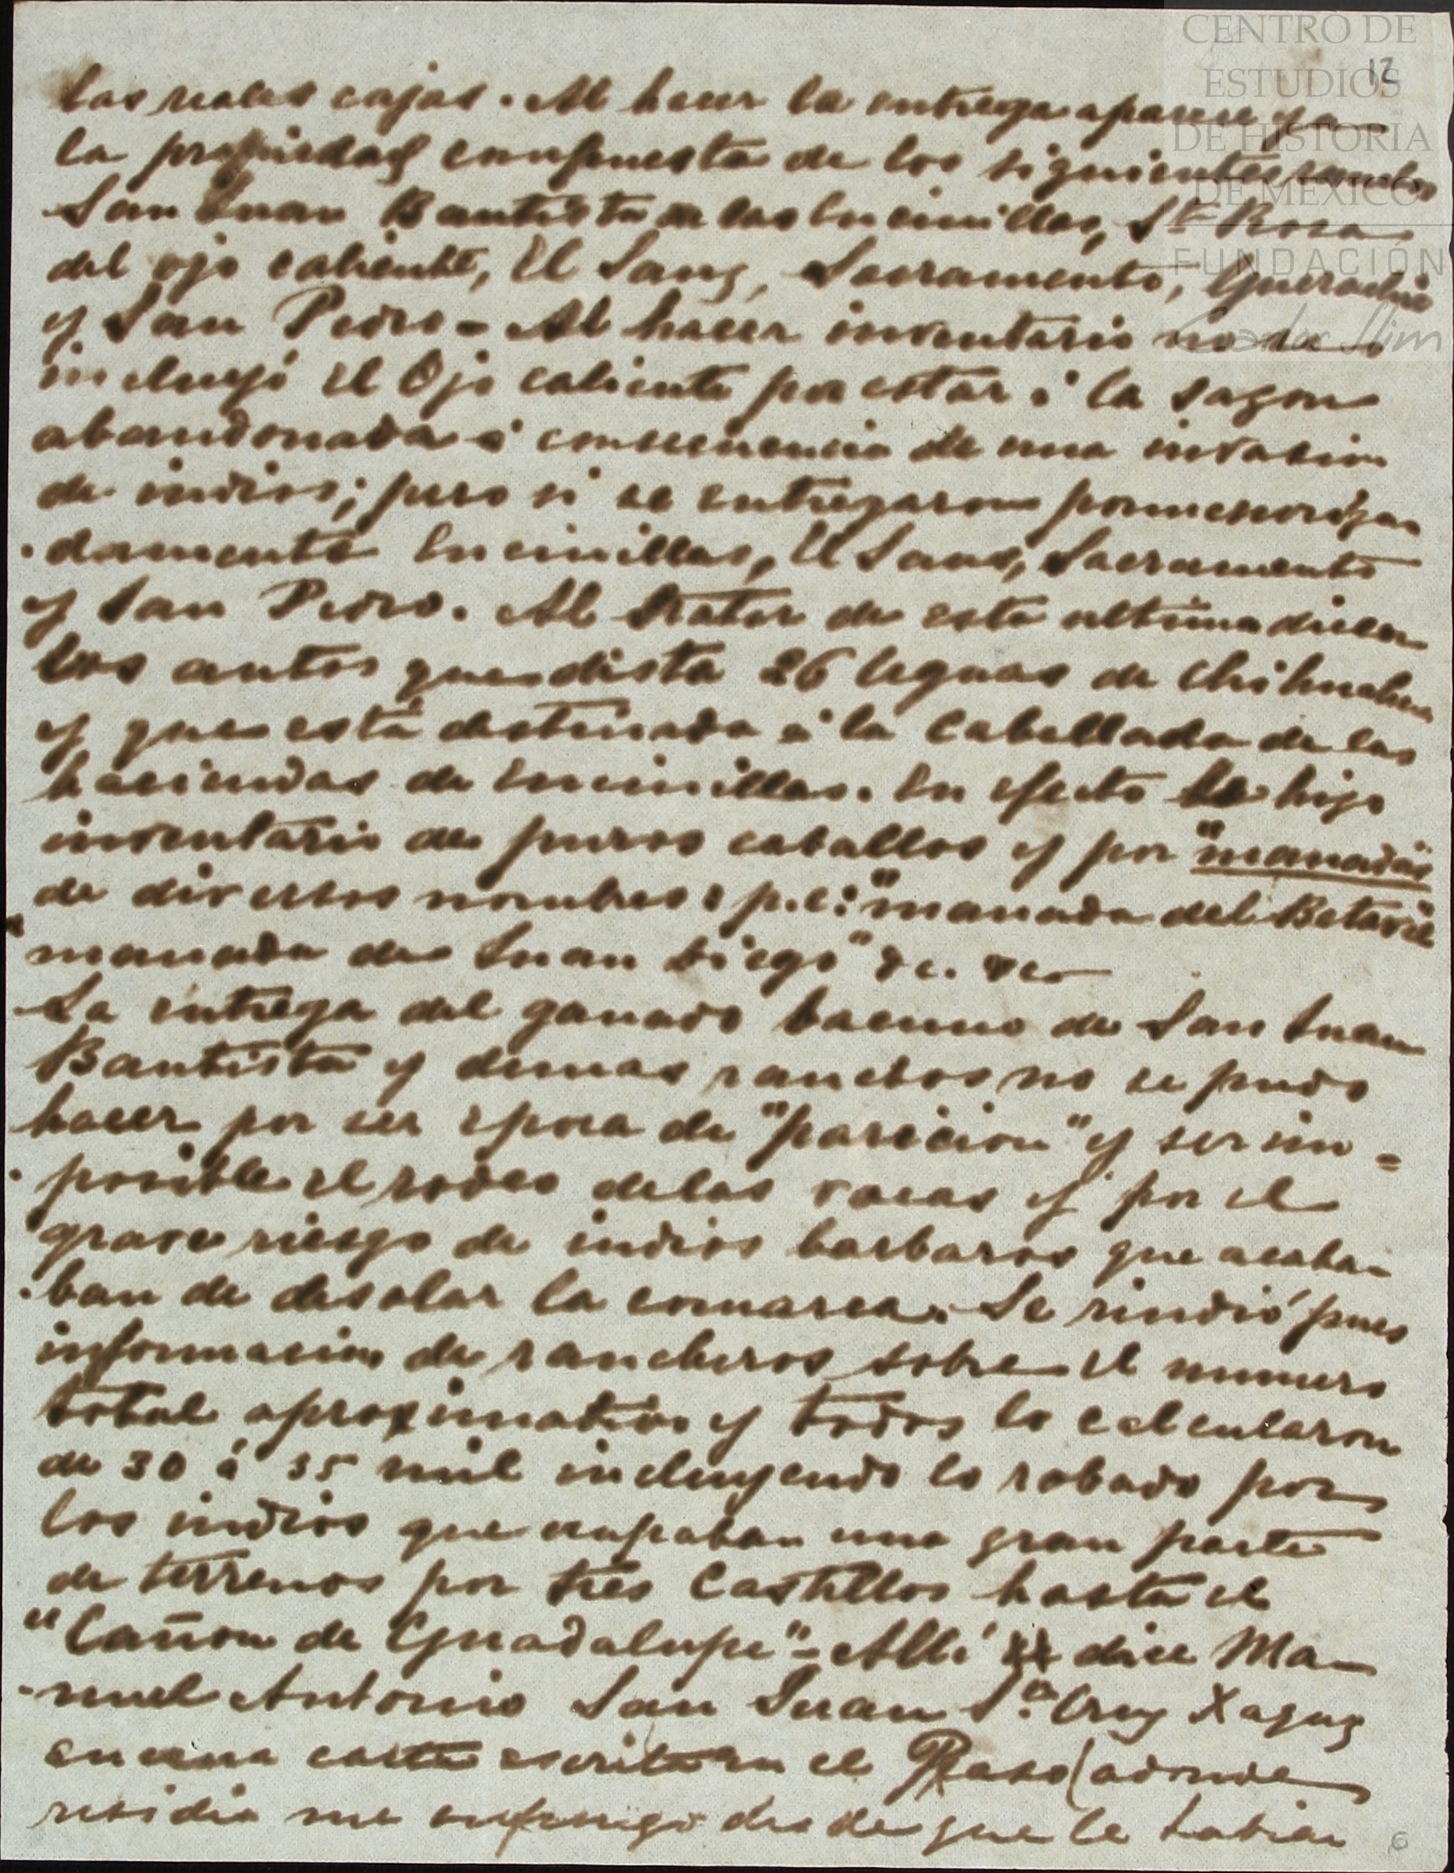 CENTRO DE
ESTUDIOS
DE HISTORIA
DE MEXICO
FUNDACIÓN
Carlos Slim
12
las reales cajas. Al hacer la entrega aparece ya
la propiedad compuesta de los siguientes
San Juan Bautista de las Encinillas, Sta. Rosa
del ojo caliente, El Sauz, Sacramento,
y San Pedro - Al hacer inventario no se
incluyó el Ojo caliente por estar á la sazon
abandonada á consecuencia de una invasion
de indios; pero si se entregaron pormenoriza
damente Encinillas, El Sauz, Sacramento
y San Pedro. Al tratar de esta ultima dicen
los autos que dista 26 leguas de Chihuahua
y que está destinada á la caballada de las
haciendas de Encinillas. En efecto se hizo
inventario de puros caballos y por "manadas"
de diversos nombres: p.e: "manada del
manada de Juan Diego" &c. &c
La entrega del ganado bacuno de San Juan
Bautista y demas ranchos no se pudo
hacer por ser epoca de "paricion" y ser im=
posible el rodeo de las vacas y por el
grave riesgo de indios barbaros que acaba-
ban de desolar la comarca. Se rindió pues
informacion de rancheros sobre el numero
total aproximativo y todos lo calcularon
de 30 á 35 mil incluyendo lo robado por
los indios que ocupaban una gran parte
de terrenos por tres Castillos hasta el
"Cañon de Guadalupe" - Allí dice Ma-
nuel Antonio San Juan Sta. Cruz Xaquez
en una carta escrita en el Paso (adonde
residia me supongo desde que le habian
6